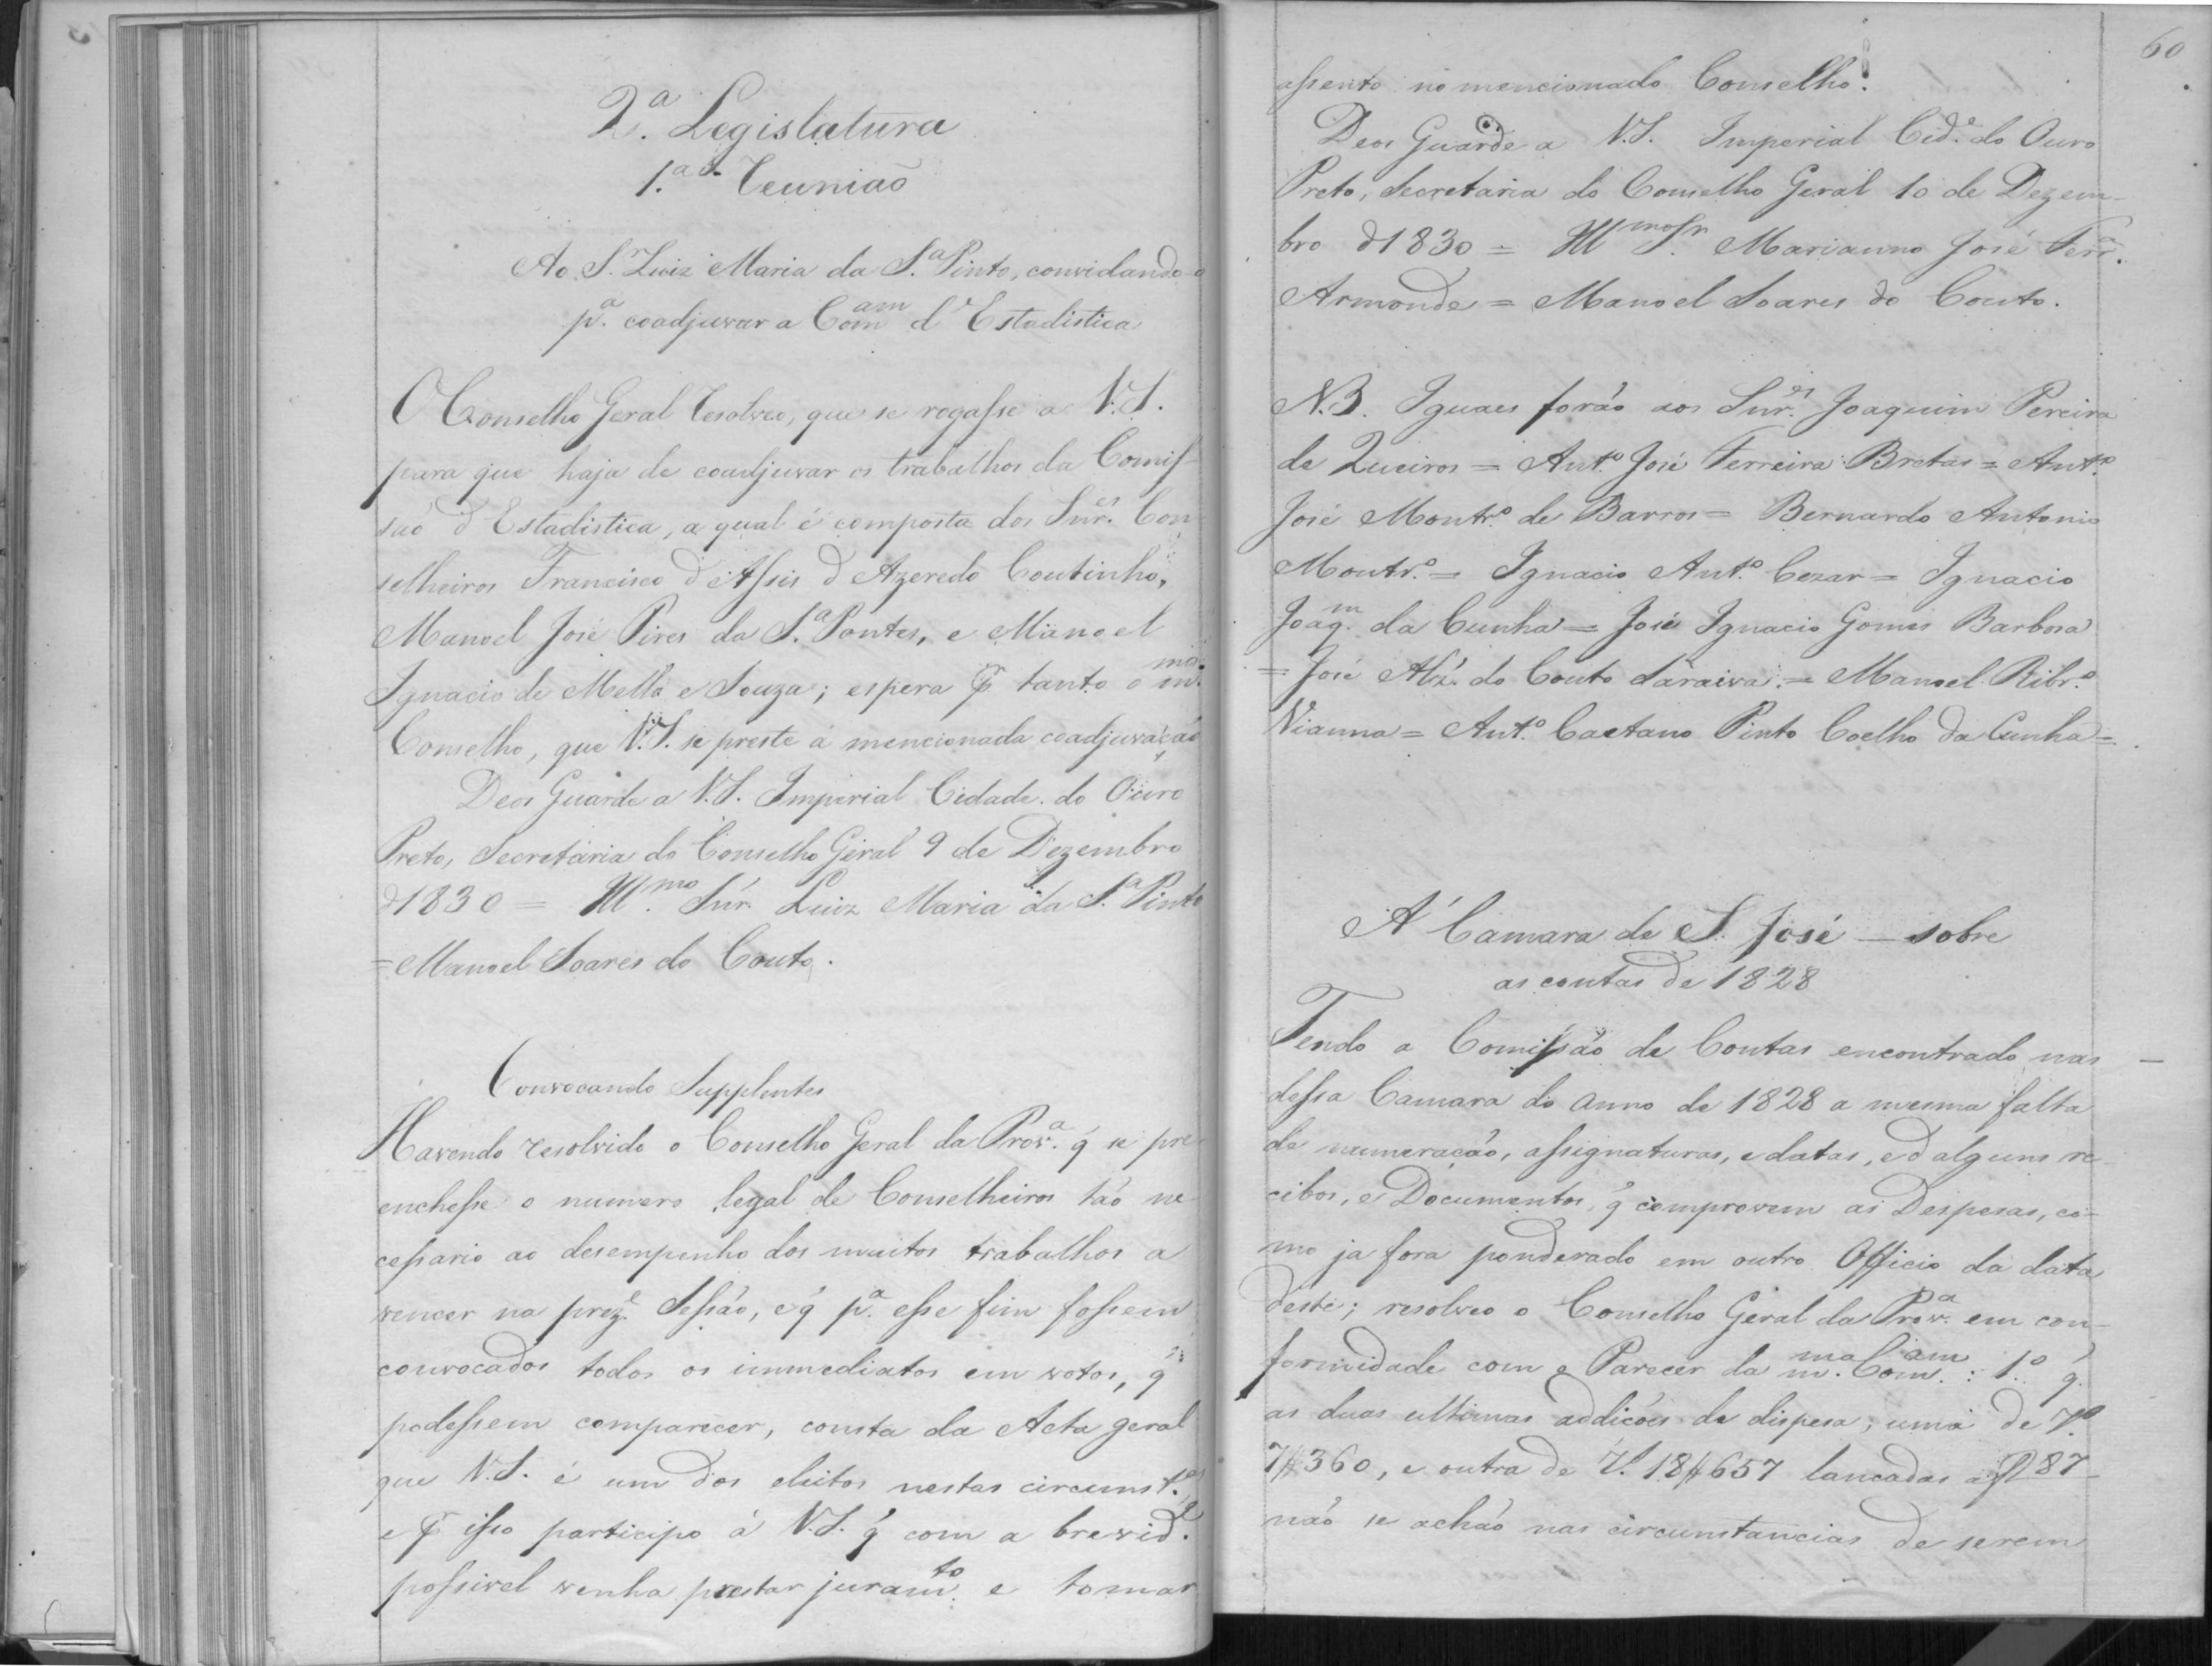 2.ª Legislatura
1.ª Reunião
Ao S.r Luiz Maria da S.ª Pinto, convidando-o
p.ª coadjuvar a Com.am d'Estadistica
O Conselho Geral resolveo, que se rogasse a V.S.
para que haja de coadjuvar os trabalhos da Comis-
são d'Estadistica, a qual é composta dos Snr.es Con
selheiros Francisco d'Assis d'Azeredo Coutinho,
Manoel José Pires da S.ª Pontes, e Manoel
Ignacio de Mello e Souza; espera p.r tanto o m.mo
Conselho, que V.S. se preste á mencionada coadjuvação
Deos Guarde a V.S. Imperial Cidade do Ouro
Preto, Secretaria do Conselho Geral 9 de Dezembro
d'1830 = Ill.mo Snr. Luiz Maria da S.ª Pinto
= Manoel Soares do Couto.
Convocando Supplentes
Havendo resolvido o Conselho Geral da Prov.ª q' se pre
enchesse o numero legal de Conselheiros tão ne
cessario ao desempenho dos muitos trabalhos a
vencer na prez.e Sessão, e q' p.ª esse fim fossem
convocados todos os immediatos em votos, q'
podessem comparecer, consta da Acta geral
que V.S. é um dos eleitos nestas circumst.as
e p.r isso participo á V.S. q' com a brevid.e
possivel venha prestar juram.to e tomar
60
assento no mencionado Conselho.
Deos Guarde a V.S. Imperial Cid.e do Ouro
Preto, Secretaria do Conselho Geral 10 de Dezem-
bro d'1830 = Ill.mo Sr. Marianno José Ferr.ª
Armonde = Manoel Soares do Couto.
N.B. Iguaes forão aos Snr.es Joaquim Pereira
de Queiros = Ant.º José Ferreira Bretas = Ant.º
José Montr.º de Barros = Bernardo Antonio
Montr.º = Ignacio Ant.º Cezar = Ignacio
Joaq.m da Cunha = José Ignacio Gomes Barbosa
= José Alz' do Couto Saraiva = Manoel Ribr.º
Vianna = Ant.º Caetano Pinto Coelho da Cunha =
A' Camara de S. José — sobre
as contas de 1828
Tendo a Comissão de Contas encontrado nas —
dessa Camara do anno de 1828 a mesma falta
de numeração, assignaturas, e datas, e d'alguns re
cibos, e Documentos, q' comprovem as Despesas, co-
mo ja fora ponderado em outro Officio da data
deste; resolveo o Conselho Geral da Prov.ª em con-
formidade com o Parecer da m.ma Com.am : 1.º q'
as duas ultimas addicões de dispesa, uma de r.s
7$360, e outra de r.s 18$657 lancadas a f 87
não se achão nas circunstancias de serem